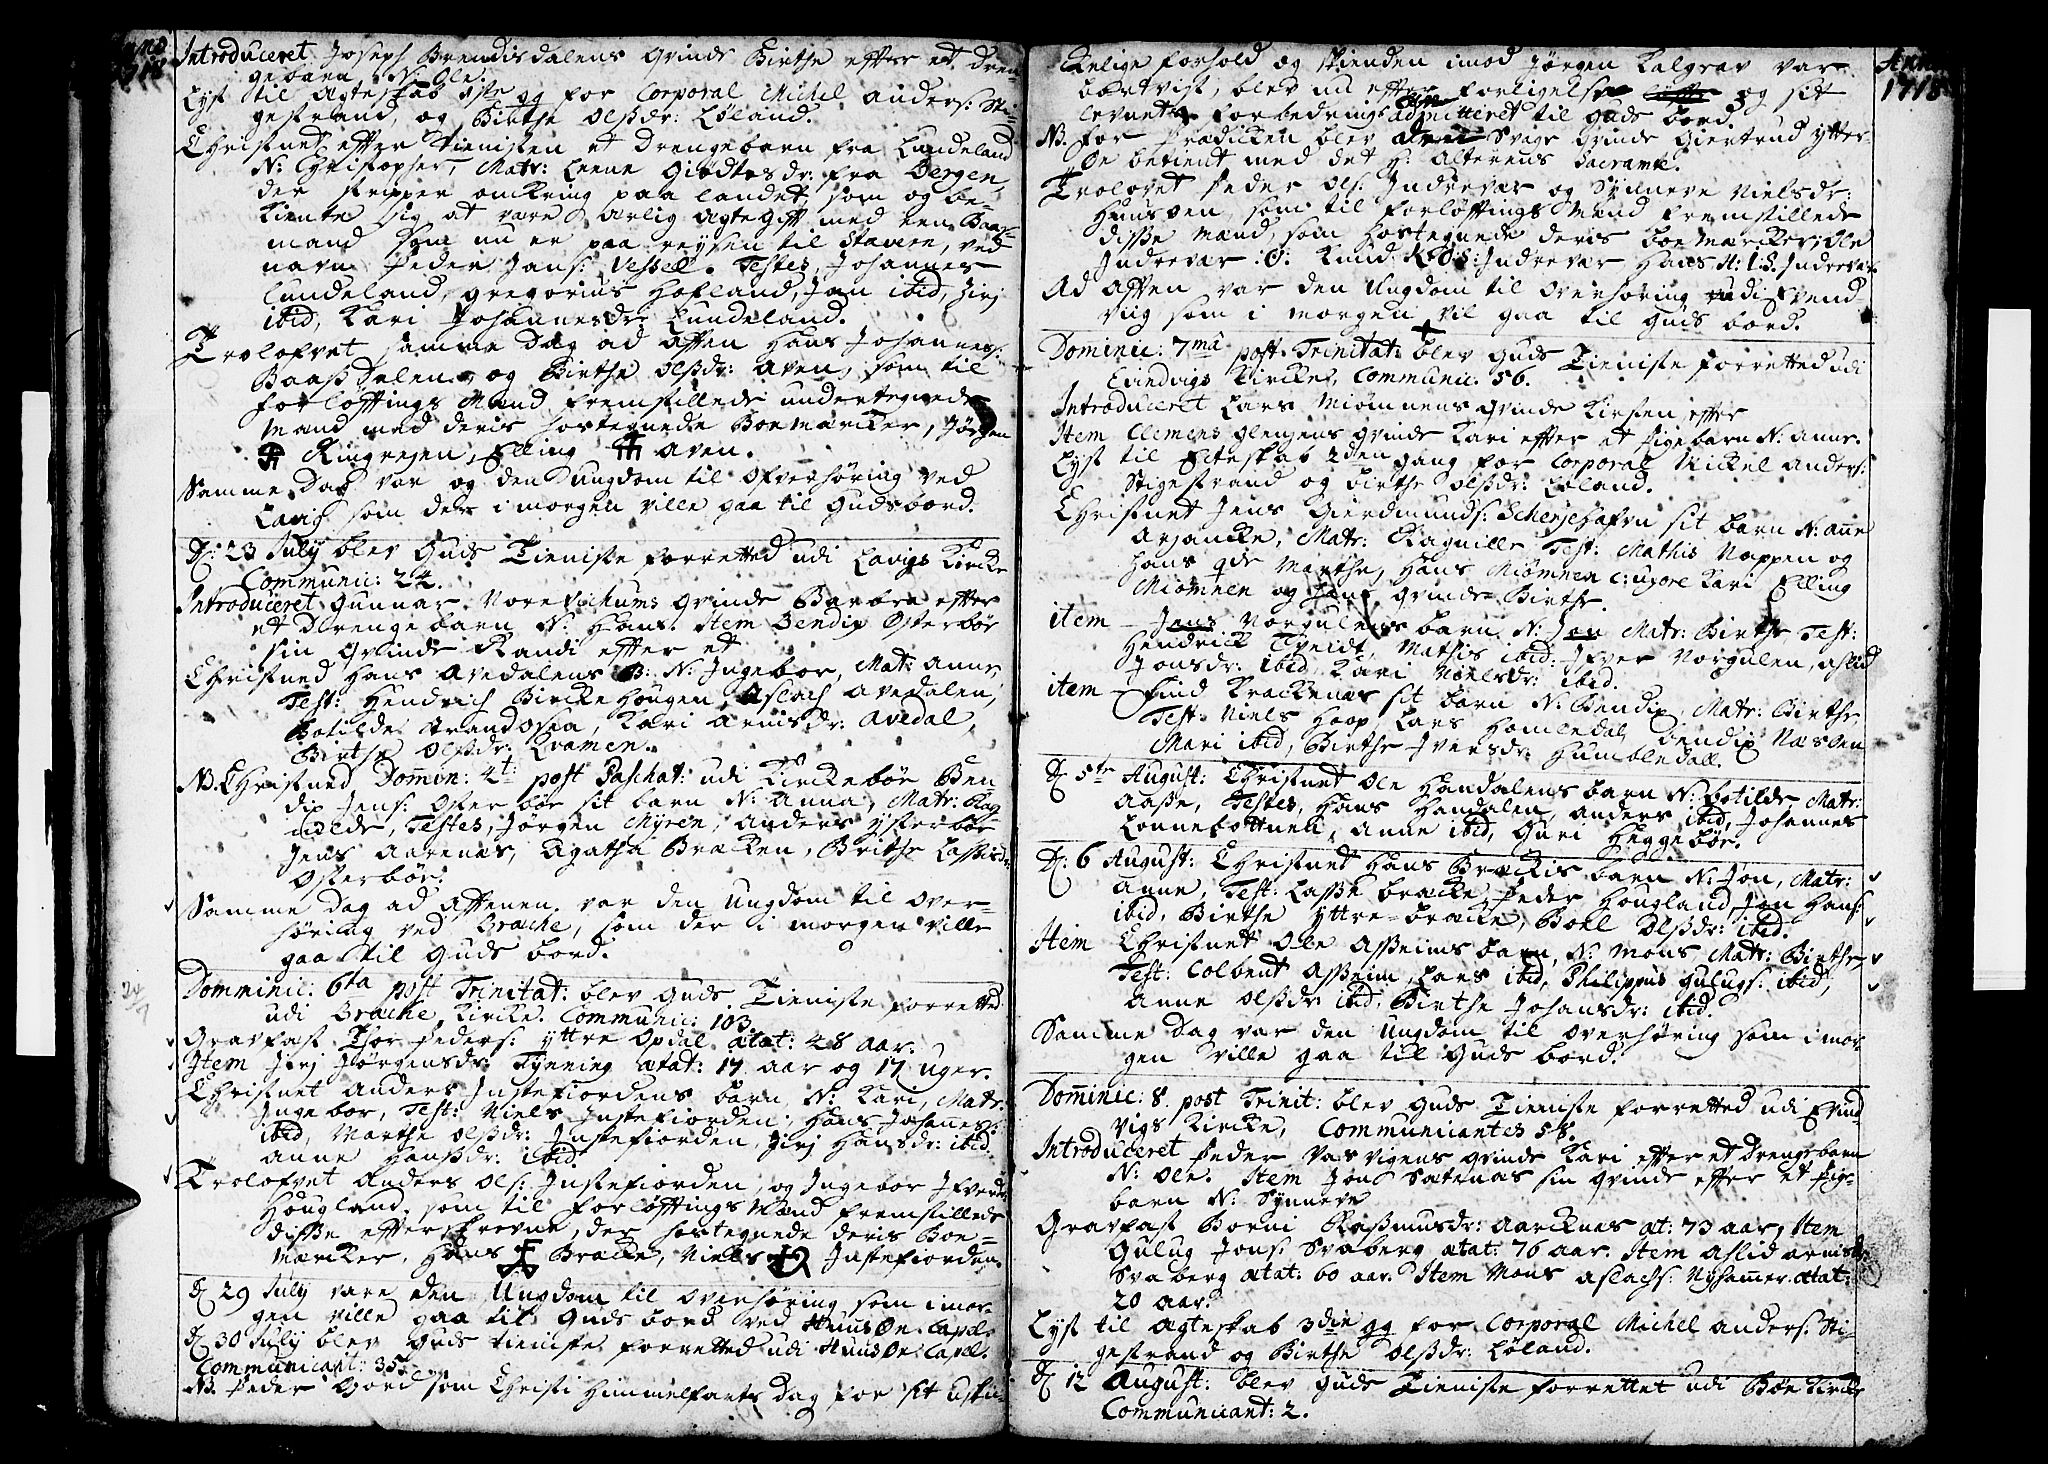 Anno
1718
Introduceret Joseph Brendisdalens Qvinde Birthe effter et Dren
gebarn N: Ole.
Lyst til Ægteskab 1ste gg for Corporal Michel Anders: Sti-
gestrand, og Birthe Olssdr: Løland.
Christnet effter Tienisten et Drengebarn fra Lundeland
N: Christopher, Matr: Leene Giødtesdr: fra Bergen,
der stripper omkring paa landet, som og be-
kiente sig at være ærlig Ægtegift med een Baas-
mand som nu er paa reysen til Stavern, ved
navn Peder Jans: Vessel. Testes, Johannes
Lundeland, Gregorius Hofland, Jon ibid, Siri
ibid, Kari Johannesdr: Lundeland.
Trolofvet samme Dag ad Afften Hans Johannes:
Baassdalen, og Birthe Olssdr: Aven, som til
forløfftings Mænd fremstillede undertegnede
Mænd med deris hostegnede Boemærcker, Jørgen
Ringrexen, Elling Aven.
Samme Dag var og den Ungdom til Ofverhøring ved
Lavig som der i morgen ville gaa til Gudsbord.
D: 23 July blev Guds Tieniste forretted udi Lavigs Kircke
Communic: 24.
Introduceret Gunnar Nore Vichums Qvinde Barbra effter
et Drengebarn N: Hans. Item Bendix Østerbøe
sin Qvinde Randi effter et
Christned Hans Avedalens B: N: Ingebor, Mat: Anne,
Test: Hendrich Birckehougen, Aslach Avedalen,
Botilde Strandosen, Kari Arnisdr: Avedal,
Birthe Olssdr: Kramen.
NB. Christned Domin: 4t: post Paschat: udi Kirckebøe Ben
dix Jens: Østerbøe sit barn N: Anna, Matr: Rag
nilde, Testes, Jørgen Myren, Anders Ysterbøe
Jens Aarenes, Agatha Bracken, Brithe Lassesdr:
Østerbøe.
Samme Dag ad Afftenen var den Ungdom til Over-
høring ved Brache, som der i morgen ville
gaa til Guds bord.
Domminic: 6ta post Trinitat: blev Guds Tieniste forretted
udi Brache Kircke. Communic: 103.
Gravfæst Thor Peders: Yttre Opdal ætat: 48 aar.
Item Siri Jørgensdr: Tynning ætat: 17 aar og 17 uger.
Christnet Anders Instefiordens barn, N: Kari, Matr.
Ingebor, Test: Niels Instefiorden, Hans Johannes:
ibid, Marthe Olssdr: Instefiorden, Siri Hansdr: ibid
Anne Hanssdr: ibid.
Trolofvet Anders Ols: Instefiorden, og Ingebor Ifversdr:
Hougland, som til forløfftings Mænd fremstillede
disse effterskrevne, der hostegnede deris Boe-
mærcker, Hans Bracke, Niels Instefiorden.
D 29 July vare den Ungdom til Overhøring som i mor-
gen ville gaa til Guds bord ved Huusøe Capel.
D 30 July blev Guds tieniste forretted udi Huusøe Capel.
Communicant: 35.
NB. Peder Giord som Christi Himmelfarts Dag for sit uskic-
Anno
1718
kelige forhold og skienden imod Jørgen Kalgrav var
bortvist, blev nu effter forligelse og sit
levnets forbedring admitteret til Guds bord.
NB. for Prædicken blev Svige Qvinde Giertrud Ytter-
øe betient med det H: Alterens Sacramte.
Trolovet Peder Ols: Indrevær og Synneve Nielsdr:
Huusøen, som til Forløfftings Mænd fremstillede
disse Mænd, som hostegnede deris boemærcker, Ole
Indrevær :O: Knud K:O:S: Indrevær Hans H:I:S. Indrevær.
Ad Afften var den Ungdom til Overhøring udi Evend
viig som i morgen vil gaa til Guds bord.
Dominic: 7ma post Trinitat: blev Guds Tieniste forretted udi
Evindvigs Kircke, Communic: 56.
Introduceret Lars Miømnens Qvinde Kirsten effter
Item Clemens Glenjens Qvinde Kari effter et Pigebarn N: Anne.
Lyst til Ecteskab 2den gang for Corporal Mickel Anders:
Stigestrand og Birthe Olssdr: Løland.
Christnet Jens Gierdmunds: Scherjehafvn sit barn N: Anne
Arjancke, Matr: Ragnille Test: Mathis Nappen og
Hans qde Marthe, Hans Miømnen c: uxore Kari Elling
Miømnen og Hans Qvinde Birthe.
item Jens Norgulens barn N: Jon Matr: Birthe Test:
Hendrick Tveidt, Mathis ibid: Ifver Norgulen, Aslid
Jonsdr: ibid, Kari Nielsdr: ibid.
item Find Krackenes sit barn N: Bendix, Matr: Birthe,
Test: Niels Hoop, Lars Homledal, Bendix Næssen
Mari ibid, Birthe Iversdr: Humbledall.
D 5te August: Christnet Ole Handalens barn N: Botilde, Matr:
Aasse, Testes, Hans Handalen, Anders ibid, Johannes
Lonnebottnen, Anne ibid, Guri Heggebøe.
D: 6 August: Christnet Hans Brackis barn N: Jon, Matr:
Anne, Test: Lasse Bracke, Peder Hougland, Jon Hans:
ibid, Birthe Yttre-bracke, Boel Olssdr: ibid.
Item Christnet Ole Asseims barn, N: Mons, Matr: Birthe,
Test: Colbent Asseim, Lars ibid, Philippus Gulugs: ibid,
Anne Olssdr: ibid, Birthe Johansdr: ibid.
Samme Dag var den Ungdom til Overhøring som i mor-
gen ville gaa til Guds bord.
Dominic: 8. post Trinit: blev Guds Tieniste forretted udi Evind-
vigs Kircke, Communicantes 58.
Introduceret Peder Vasvigens Qvinde Kari effter et Drengebarn
N: Ole. Item Jon Sætenæs sin Qvinde effter et Pige-
barn N: Synneve
Gravfæst Borni Rassmusdr: Aarcknæs æt: 73 aar, Item
Gulug Jons: Svaberg ætat: 76 aar. Item Aslid Arnisdr:
Svaberg ætat: 60 aar. Item Mons Aslachs: Nyhamer ætat:
20 aar.
Lyst til Ægteskab 3die gg for Corporal Michel Anders: Sti-
gestrand og Birthe Olssdr: Løland.
D 12 August: blev Guds Tieniste forrettet udi Bøe Kircke
Communicant: 2.